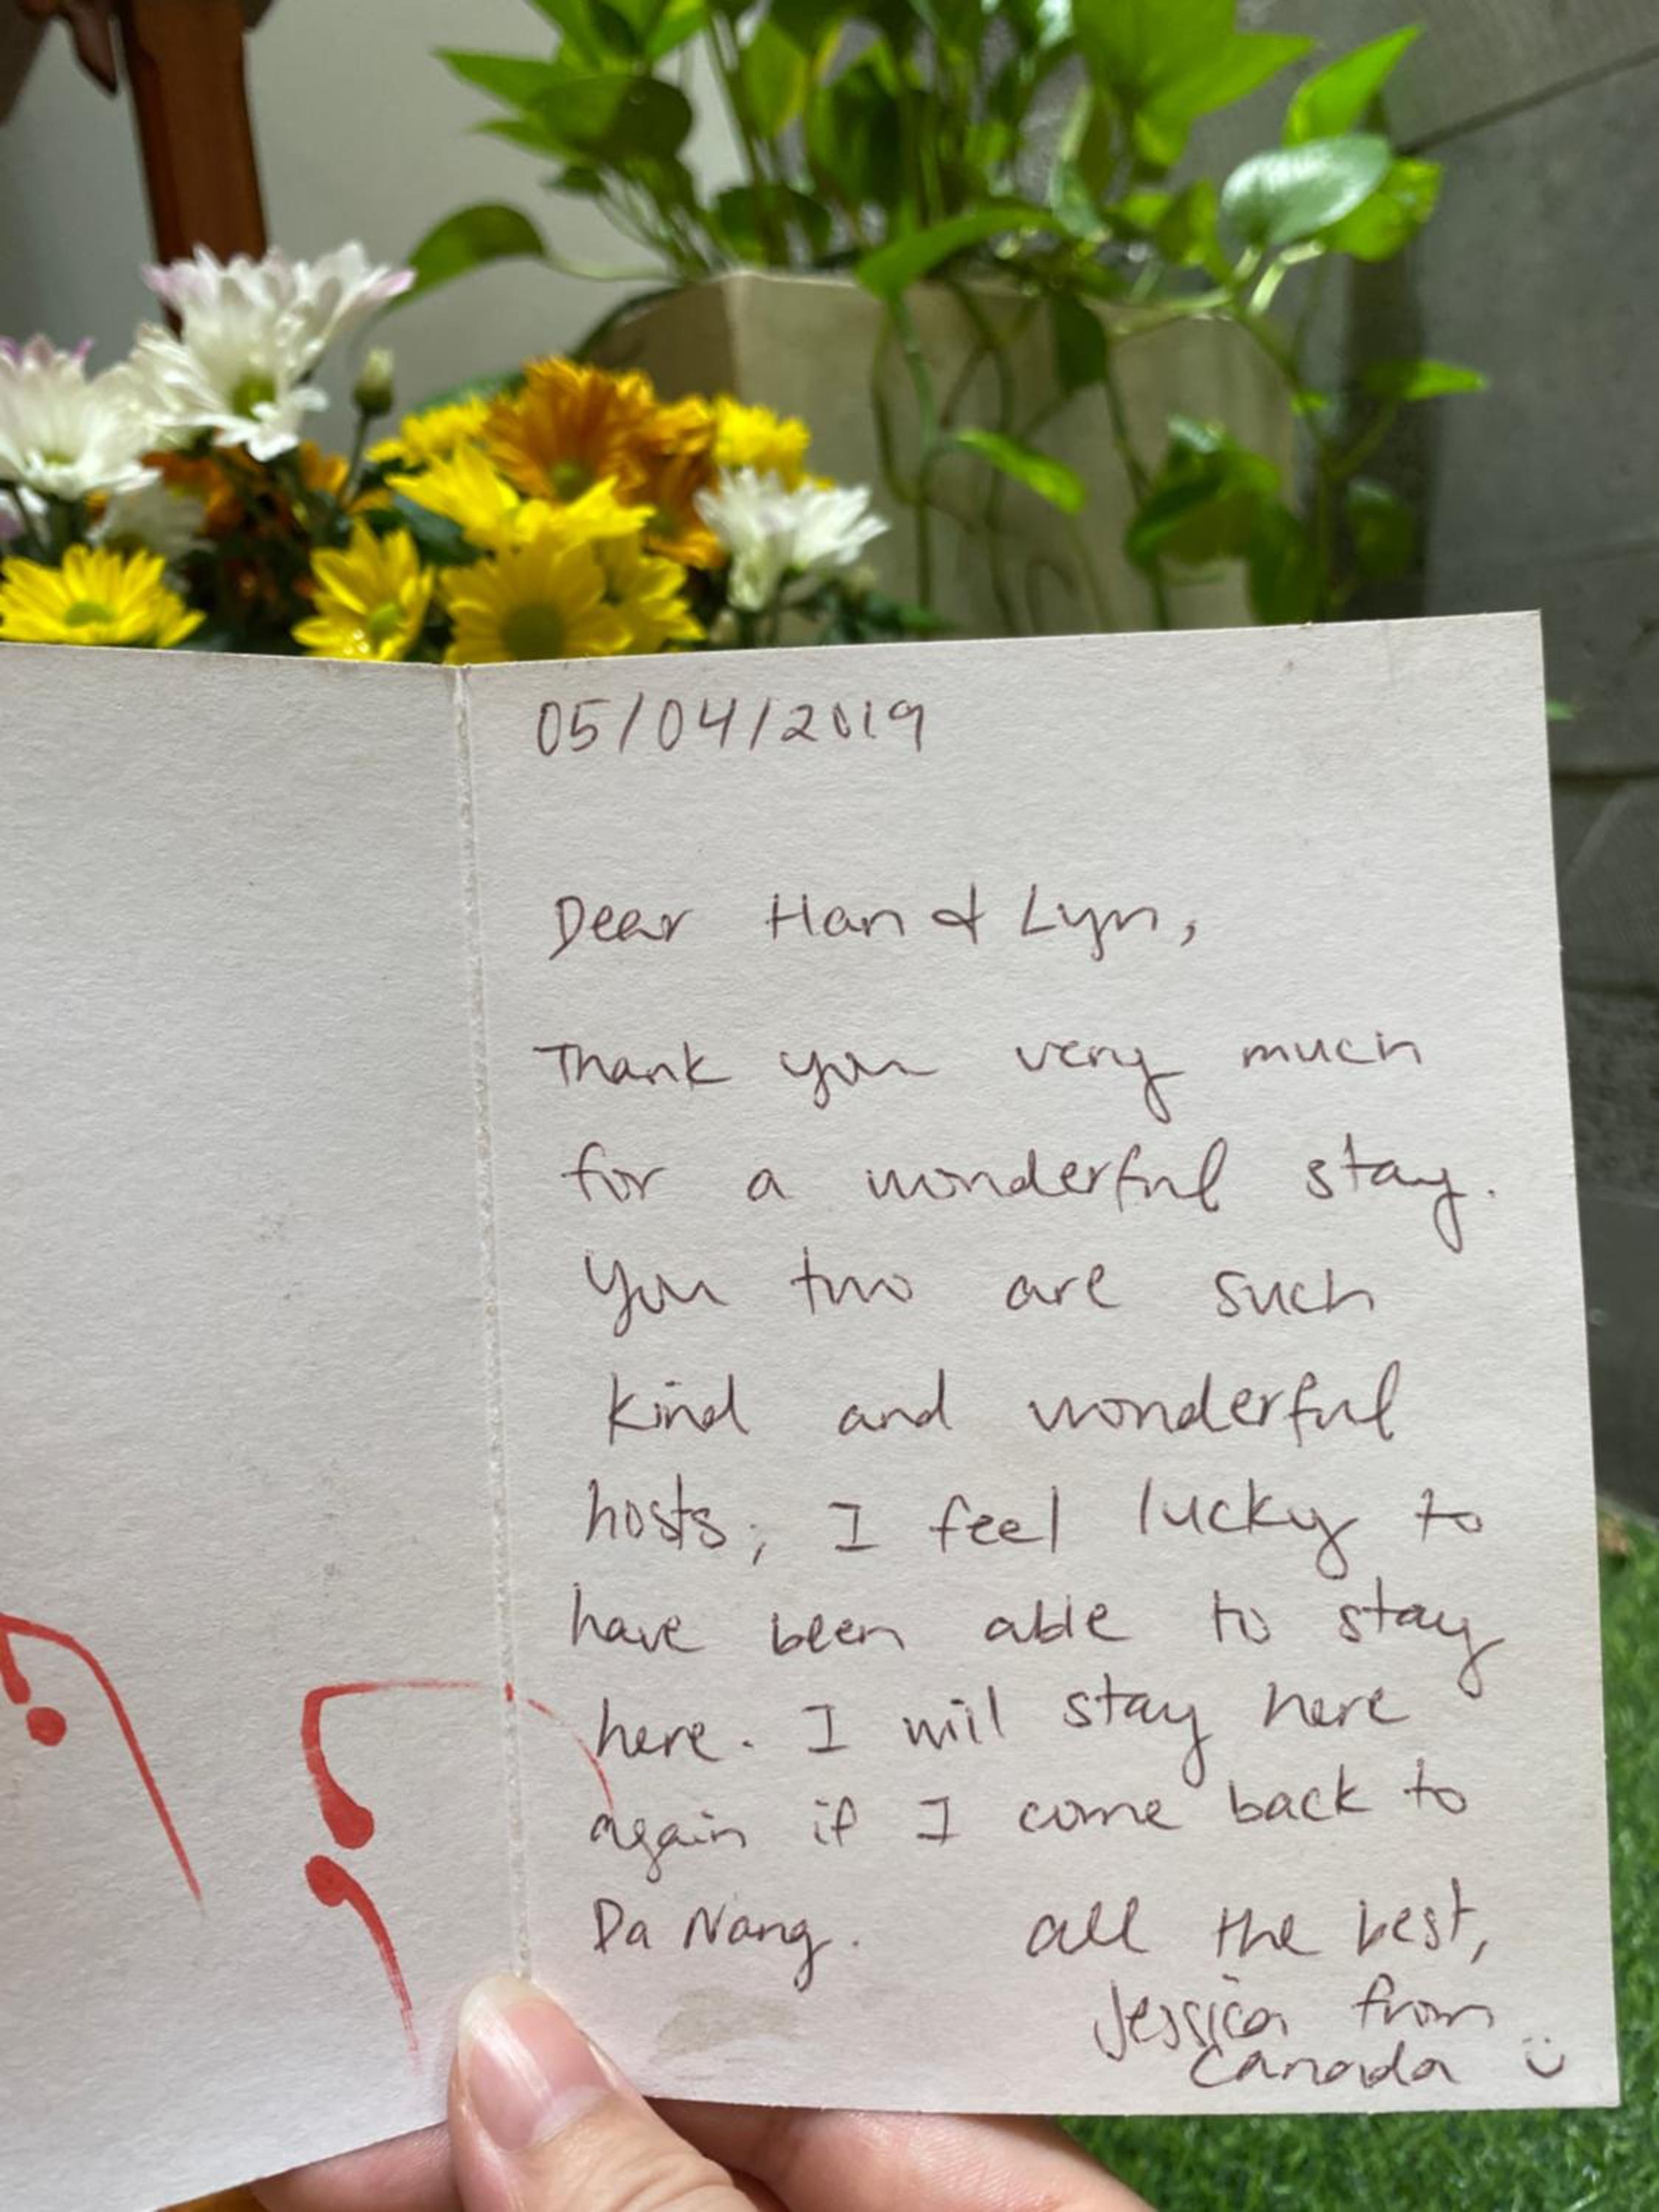 05/04/2019
Dear Han & Lyn,
Thank you very much
for a wonderful stay.
You two are such
kind and wonderful
hosts; I feel lucky to
have been able to stay
here. I will stay here
again if I come back to
Da Nang. all the best,
Jessica from
Canada :)